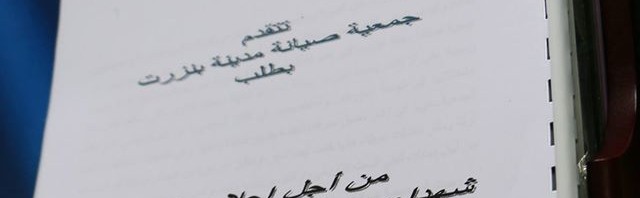 تتقدم
جمعية صيانة مدينة بنزرت
بطلب
من أجل